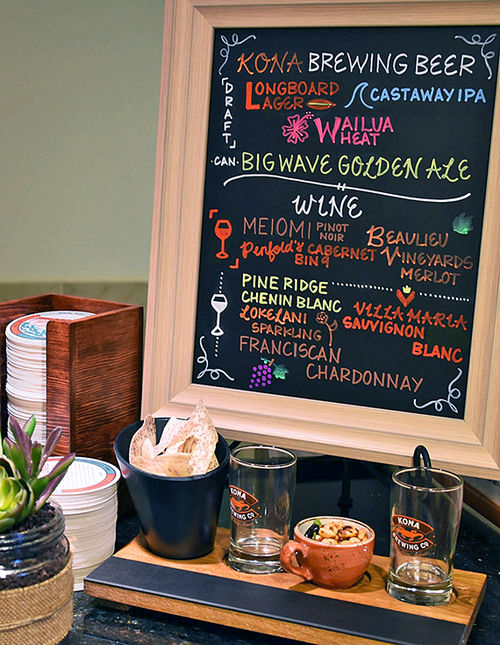 KONA BREWING BEER
DRAFT
LONGBOARD
LAGER
CASTAWAY IPA
WAILUA
WHEAT
CAN
BIG WAVE GOLDEN ALE
WINE
MEIOMI PINOT NOIR
Penfold's CABERNET
BIN 9
BEAULIEU
VINEYARDS
MERLOT
PINE RIDGE
CHENIN BLANC
LOKELANI
SPARKLING
VILLA MARIA
SAUVIGNON
BLANC
FRANCISCAN
CHARDONNAY
KONA
BREWING CO.
KONA
BREWING CO.